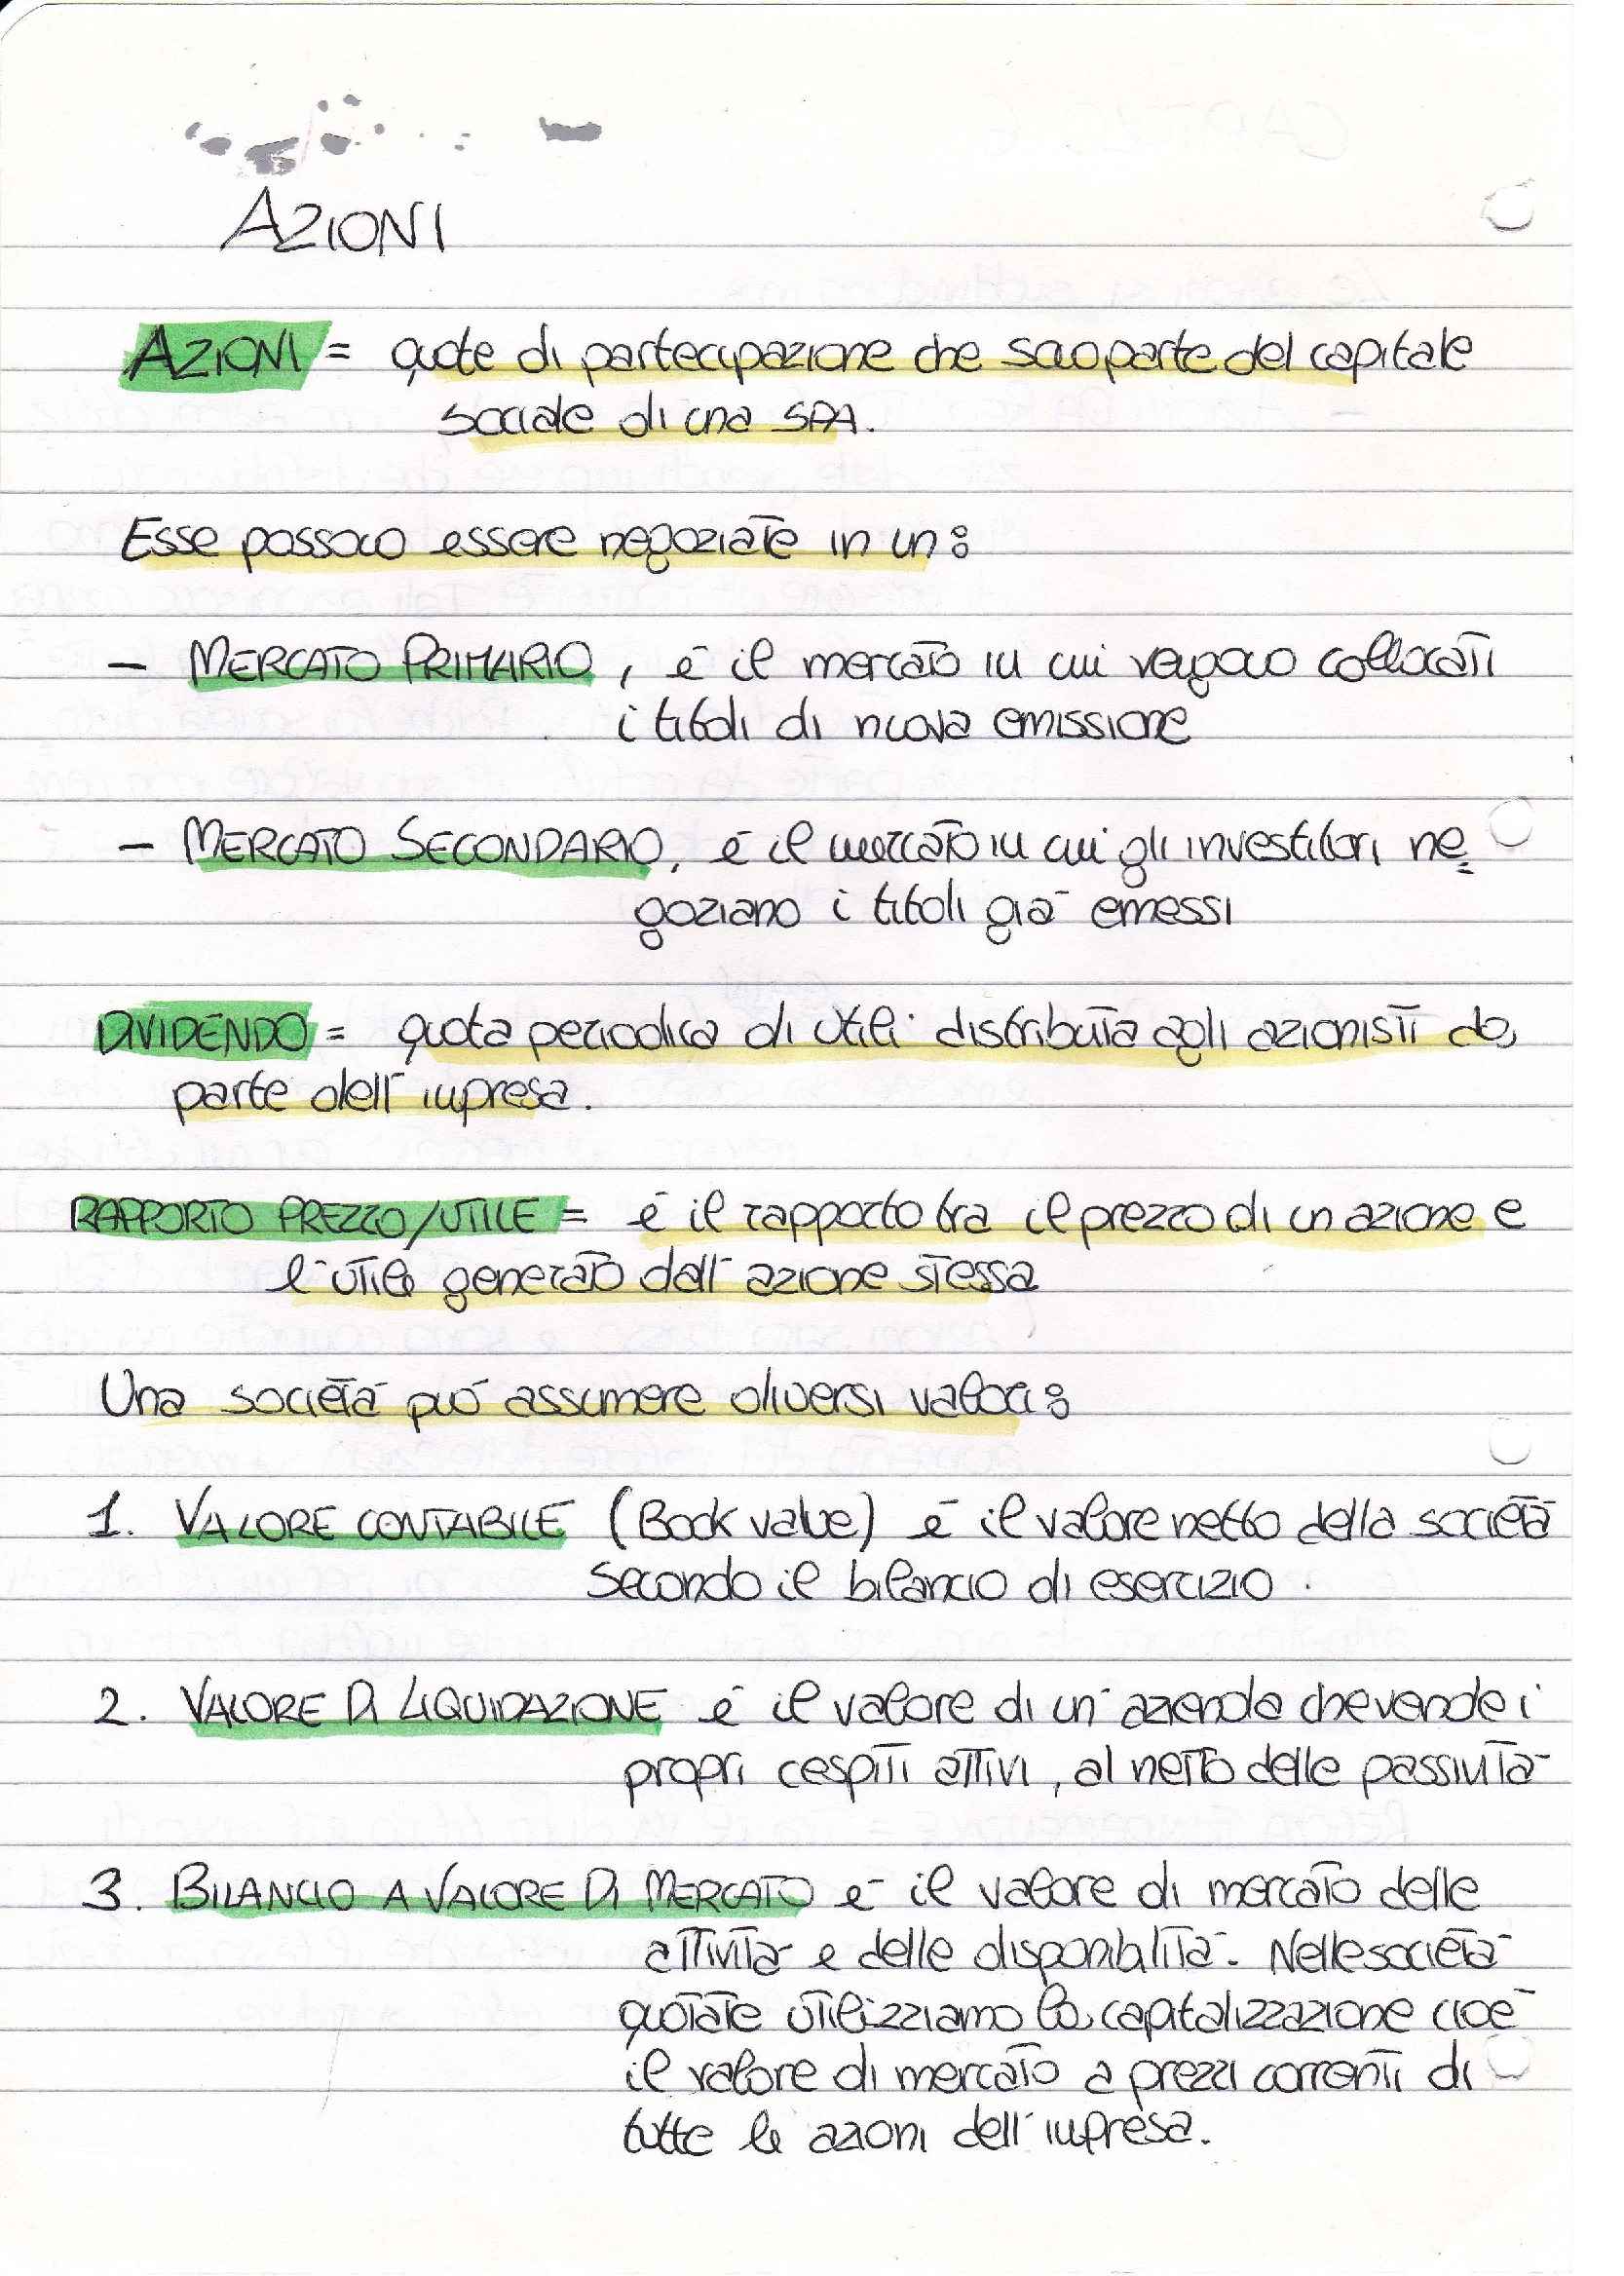 AZIONI
AZIONI = quote di partecipazione che sono parte del capitale
sociale di una SPA.
Esse possono essere negoziate in un:
- MERCATO PRIMARIO, è il mercato in cui vengono collocati
i titoli di nuova emissione
- MERCATO SECONDARIO, è il mercato in cui gli investitori ne=
goziano i titoli già emessi
DIVIDENDO = quota periodica di utili distribuita agli azionisti da
parte dell'impresa.
RAPPORTO PREZZO/UTILE = è il rapporto tra il prezzo di un azione e
l'utile generato dall'azione stessa
Una società può assumere diversi valori:
1. VALORE CONTABILE (Book value) è il valore netto della società
secondo il bilancio di esercizio.
2. VALORE DI LIQUIDAZIONE è il valore di un'azienda che vende i
propri cespiti attivi, al netto delle passività
3. BILANCIO A VALORE DI MERCATO è il valore di mercato delle
attività e delle disponibilità. Nelle società
quotate utilizziamo la capitalizzazione cioè
il valore di mercato a prezzi correnti di
tutte le azioni dell'impresa.